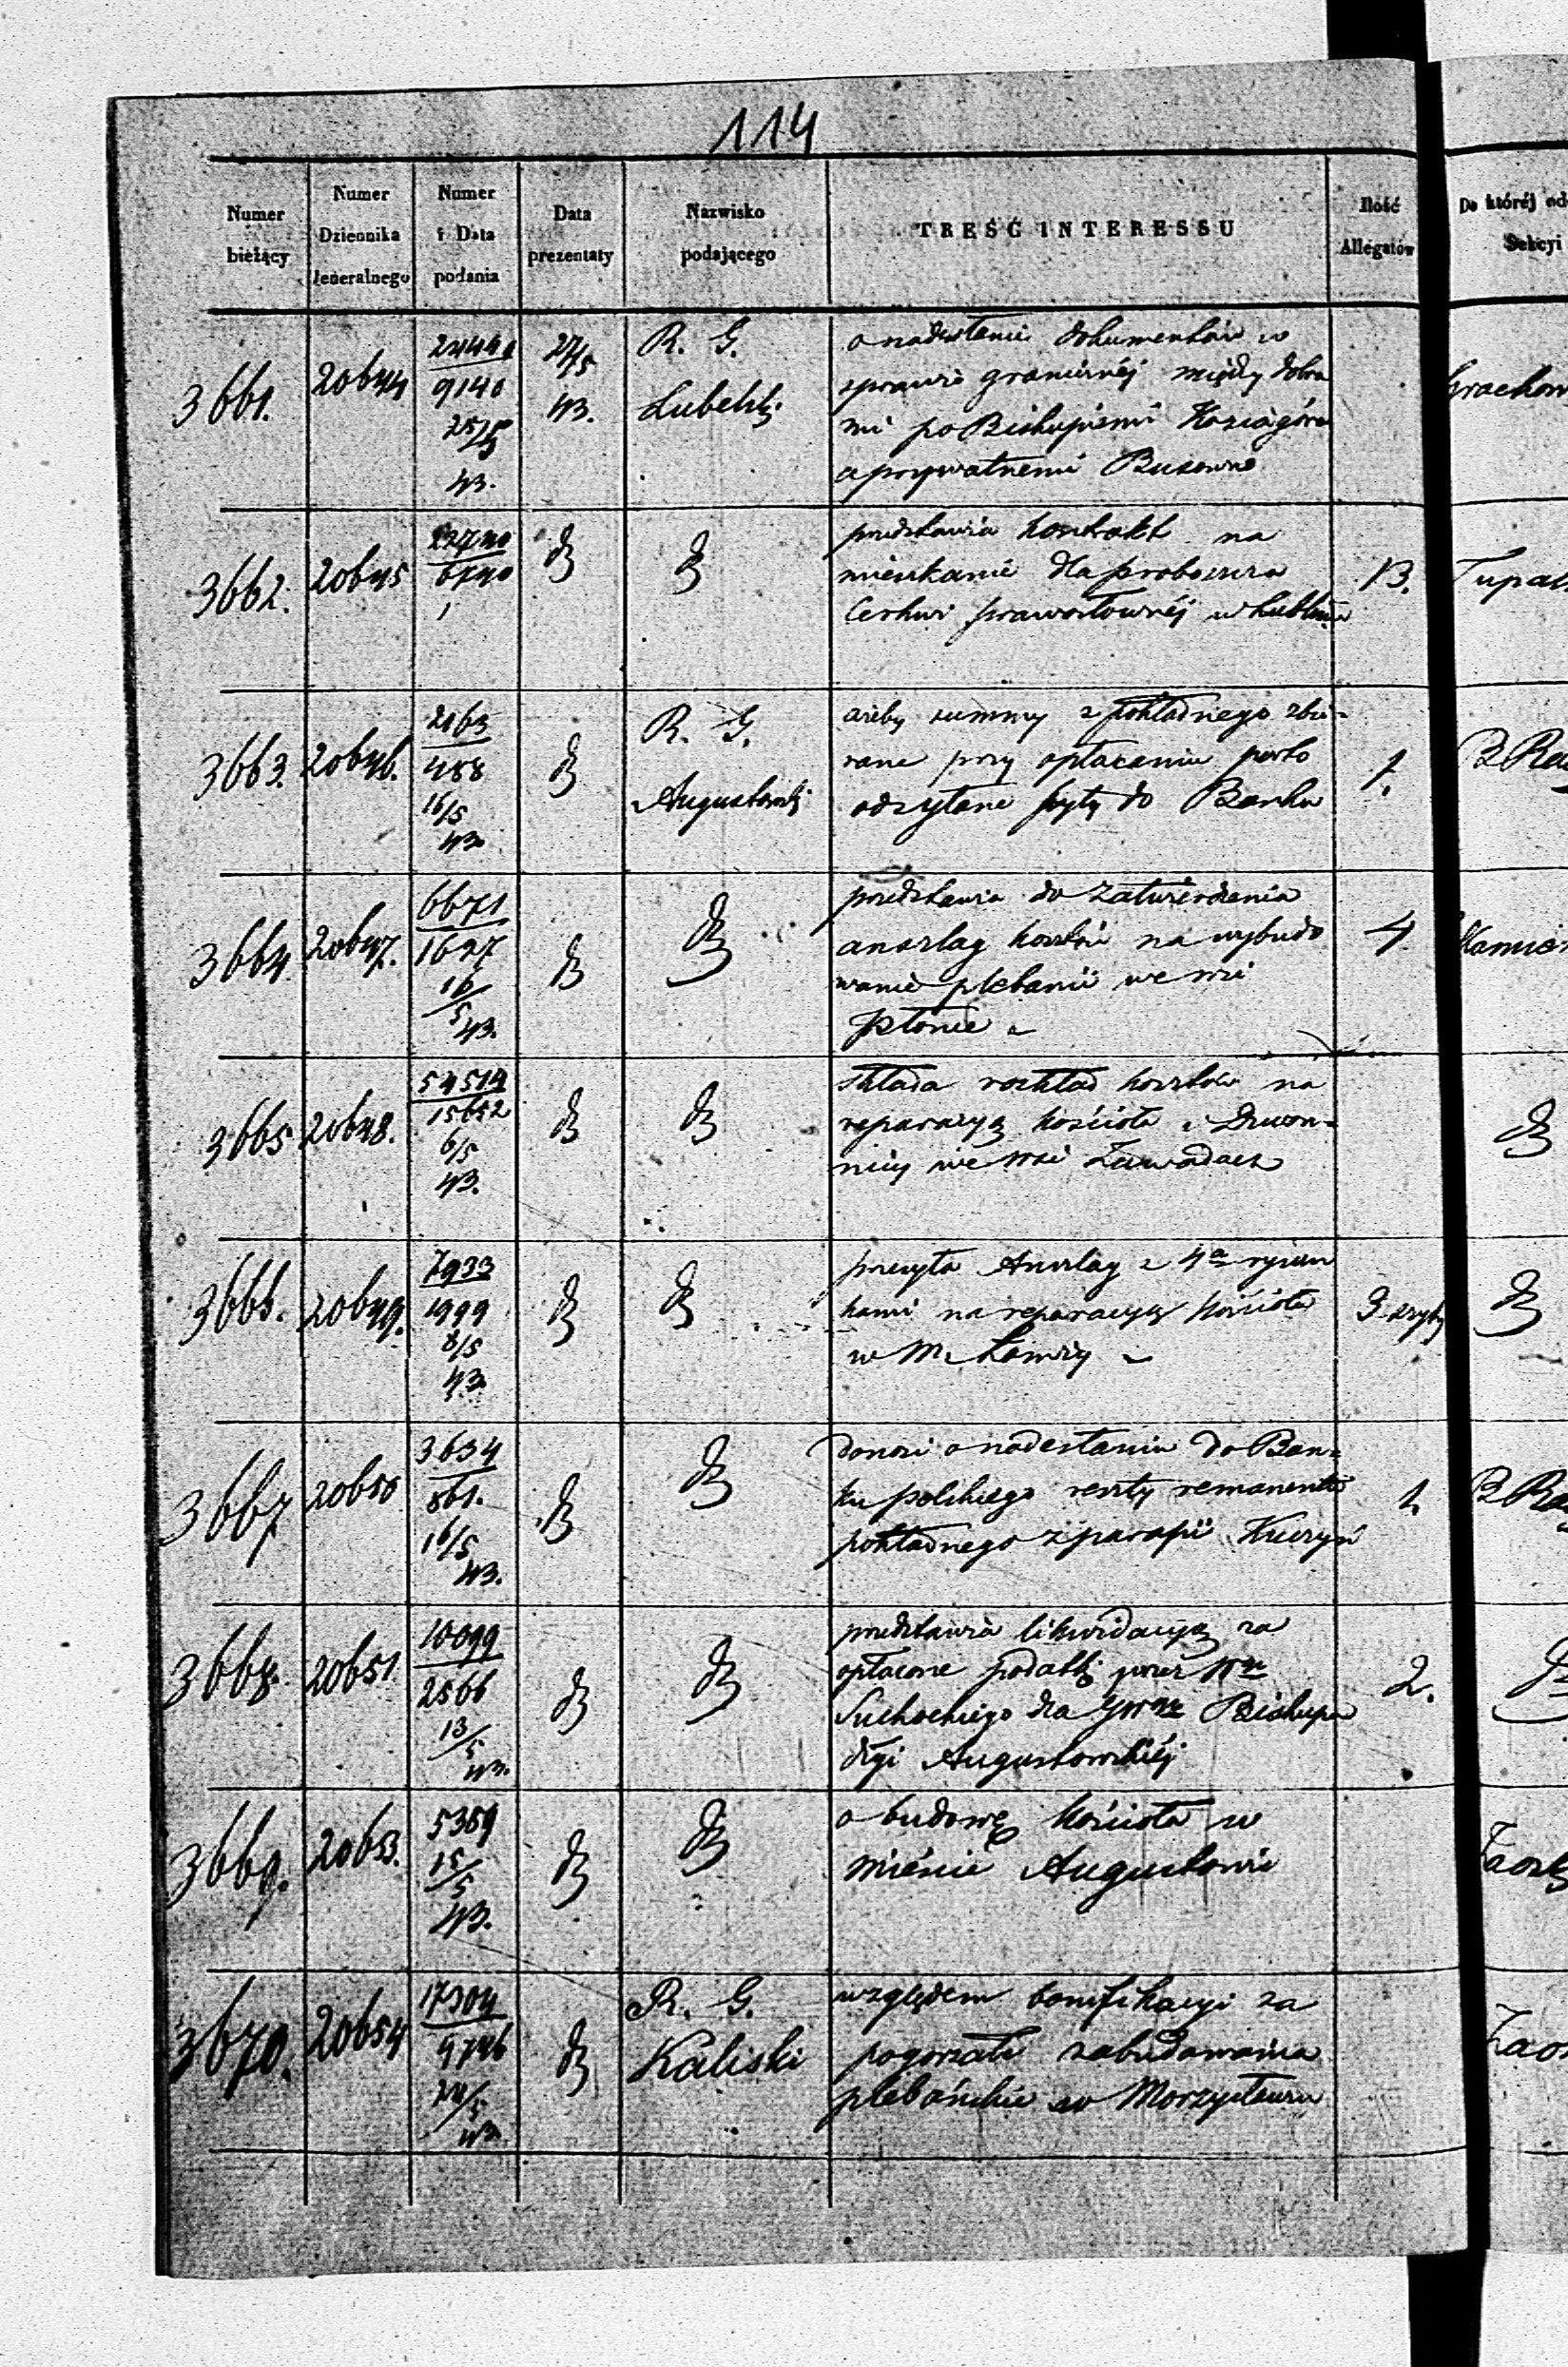 114
Numer bieżący
Numer Dziennika Jeneralnego
Numer i Data podania
Data prezentaty
Nazwisko podającego
TREŚĆ INTERESSU
Ilość Allegatów
Do któréj od
Sekcyi
3661.
20644
9140
25/5
43.
27/5
43.
R. G.
Lubelski
o nadesłanie dokumentów w
sprawie granicznéj między dobra
mi po Biskupiemi Koziagóra
a prywatnemi Busowno
3662.
20645
6740
1
dto
dto
przedstawia kontrakt na
mieszkanie dla proboszcza
Cerkwi prawosławnéj w Lublinie
13.
3663.
20646.
2163
488
16/5
43.
dto
R. G.
Augustowski
ażeby summy z pokładnego zbie-
rane przy opłacaniu porto
odsyłane były do Banku
1.
3664
20647.
6671
1627
16/5
43.
dto
dto
przedstawia do zatwierdzenia
anszlag kosztów na wybudo
wanie plebanii we wsi
4
3665
20648.
54514
15652
6/5
43.
dto
dto
składa rozkład kosztów na
reparacyą kościoła i Dzwon-
nicy we wsi Zawadach
dto
3666.
20649.
7933
1999
8/5
43.
dto
dto
przesyła Anszlag z 4a rysun
kami na reparacyą kościoła
w M. Łomży
3 szyty
dto
3667
20650
3634
861.
16/5
43.
dto
dto
donosi o nadesłaniu do Ban-
ku polskiego reszty remanentu
pokładnego z parafii Kuczyn
1
3668.
20651.
10099
2566
13/5
43.
dto
dto
przedstawia likwidacyą za
opłacone podatki przez
Suchockiego dla Biskupa
dyi Augustowskiéj
2.
3669.
20653.
5369
15/5
43.
dto
dto
o budowę kościoła w
mieście Augustowie
3670.
20654
17304
4746
20/5
43.
dto
R. G.
Kaliski
względem bonifikacyi za
pogorzałe zabudowania
plebańskie w Morzysławiu